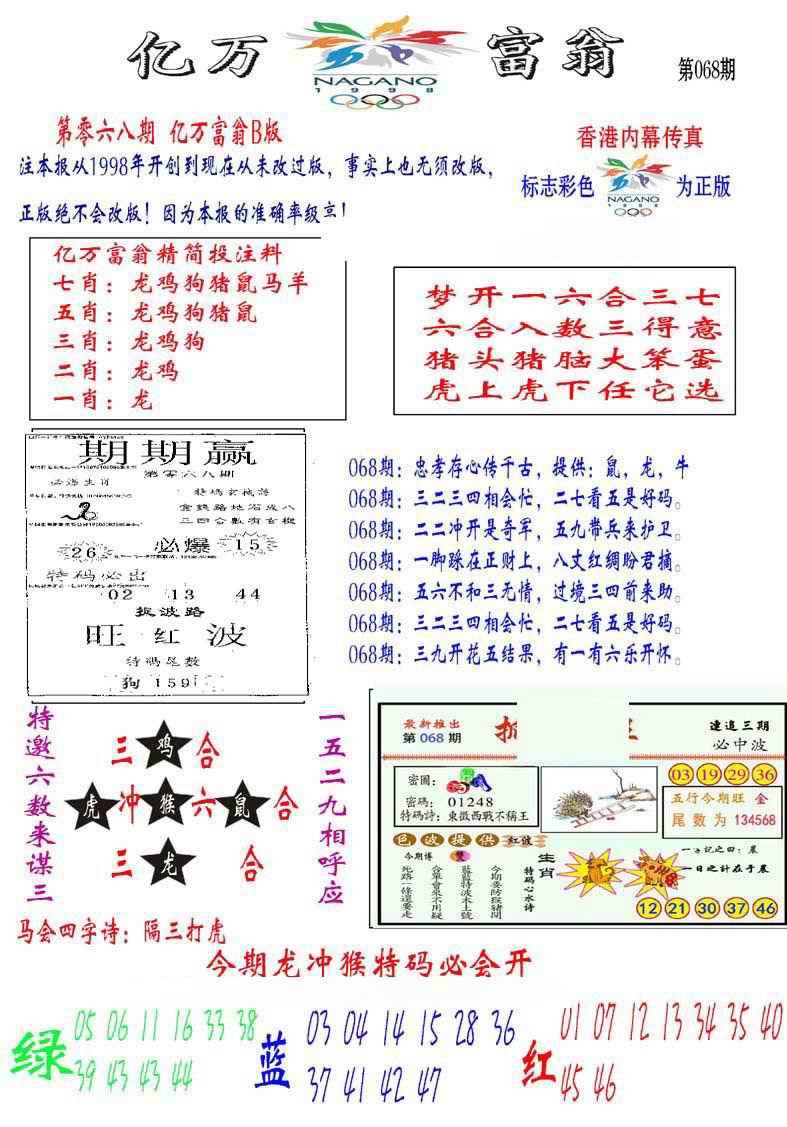 亿万富翁
NAGANO
1998
第068期
第零六八期 亿万富翁B版
香港内幕传真
注本报从1998年开创到现在从未改过版，事实上也无须改版，
标志彩色
NAGANO
1998
为正版
正版绝不会改版！因为本报的准确率级高！
亿万富翁精简投注料
七肖：龙鸡狗猪鼠马羊
五肖：龙鸡狗猪鼠
三肖：龙鸡狗
二肖：龙鸡
一肖：龙
梦开一六合三七
六合入数三得意
猪头猪脑大笨蛋
虎上虎下任它选
期期赢
第零六八期
必爆
26
15
特码必出
02 13 44
捉波路
旺红波
特码尾数
狗159
068期：忠孝存心传千古，提供：鼠，龙，牛
068期：三二三四相会忙，二七看五是好码。
068期：二二冲开是奇军，五九带兵来护卫。
068期：一脚踩在正财上，八丈红绸盼君摘。
068期：五六不和三无情，过境三四前来助。
068期：三二三四相会忙，二七看五是好码。
068期：三九开花五结果，有一有六乐开怀。
特邀六数来谋三
三 鸡 合
虎 冲 猴 六 鼠 合
三 龙 合
一五二九相呼应
最新推出
第068期
連追三期
必中波
密圖：
密碼：01248
特碼詩：東徵西戰不稱王
03 19 29 36
五行今期旺 金
尾数为134568
色波提供 红波
今期博
生肖
特码心水诗
一日之計在于晨
12 21 30 37 46
马会四字诗：隔三打虎
今期龙冲猴特码必会开
绿
05 06 11 16 33 38
39 43 43 44
蓝
03 04 14 15 28 36
37 41 42 47
红
01 07 12 13 34 35 40
45 46